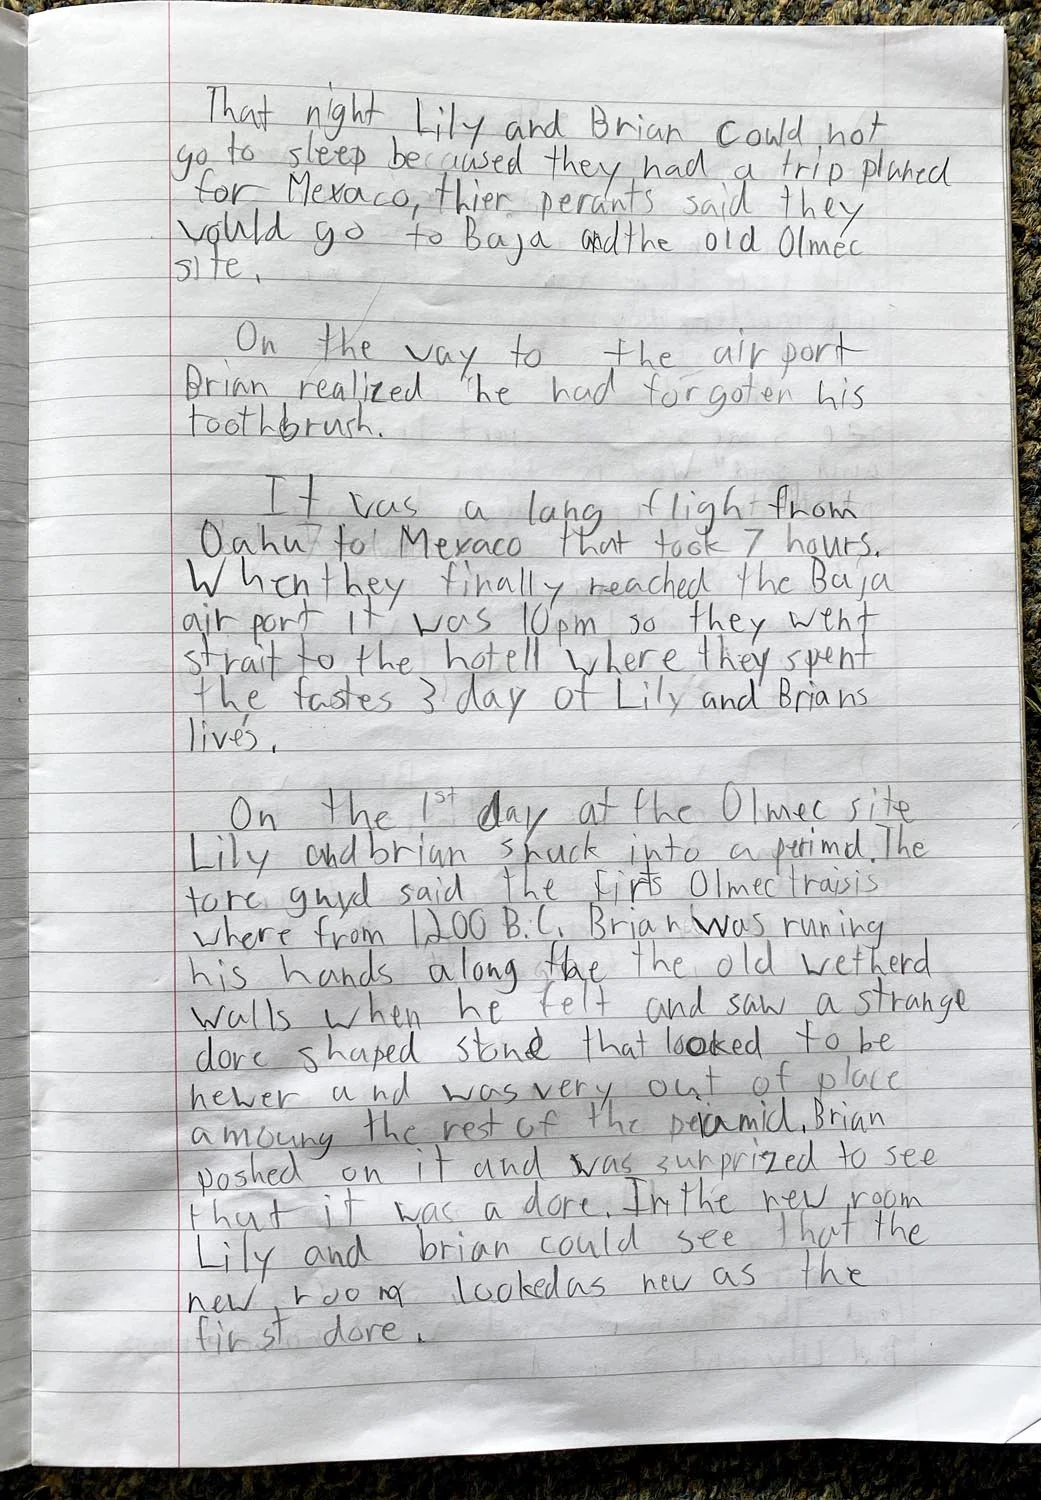 That night Lily and Brian could not
go to sleep becaused they had a trip planed
for Mexaco, thier perants said they
would go to Baja and the old Olmec
site.
On the way to the air port
Brian realized he had forgoten his
toothbrush.
It was a lang fligh from
Oahu to Mexaco that took 7 hours.
When they finally reached the Baja
air port it was 10pm so they went
strait to the hotell where they spent
the fastes 3 day of Lily and Brians
lives.
On the 1st day at the Olmec site
Lily and brian snuck into a perimd. The
tore guyd said the firts Olmec traisis
where from 1200 B.C. Brian was runing
his hands along the the old wetherd
walls when he felt and saw a strange
dore shaped stone that looked to be
newer and was very out of place
amoung the rest of the piramid. Brian
poshed on it and was surprized to see
that it was a dore. In the new room
Lily and brian could see that the
new room looked as new as the
first dore.